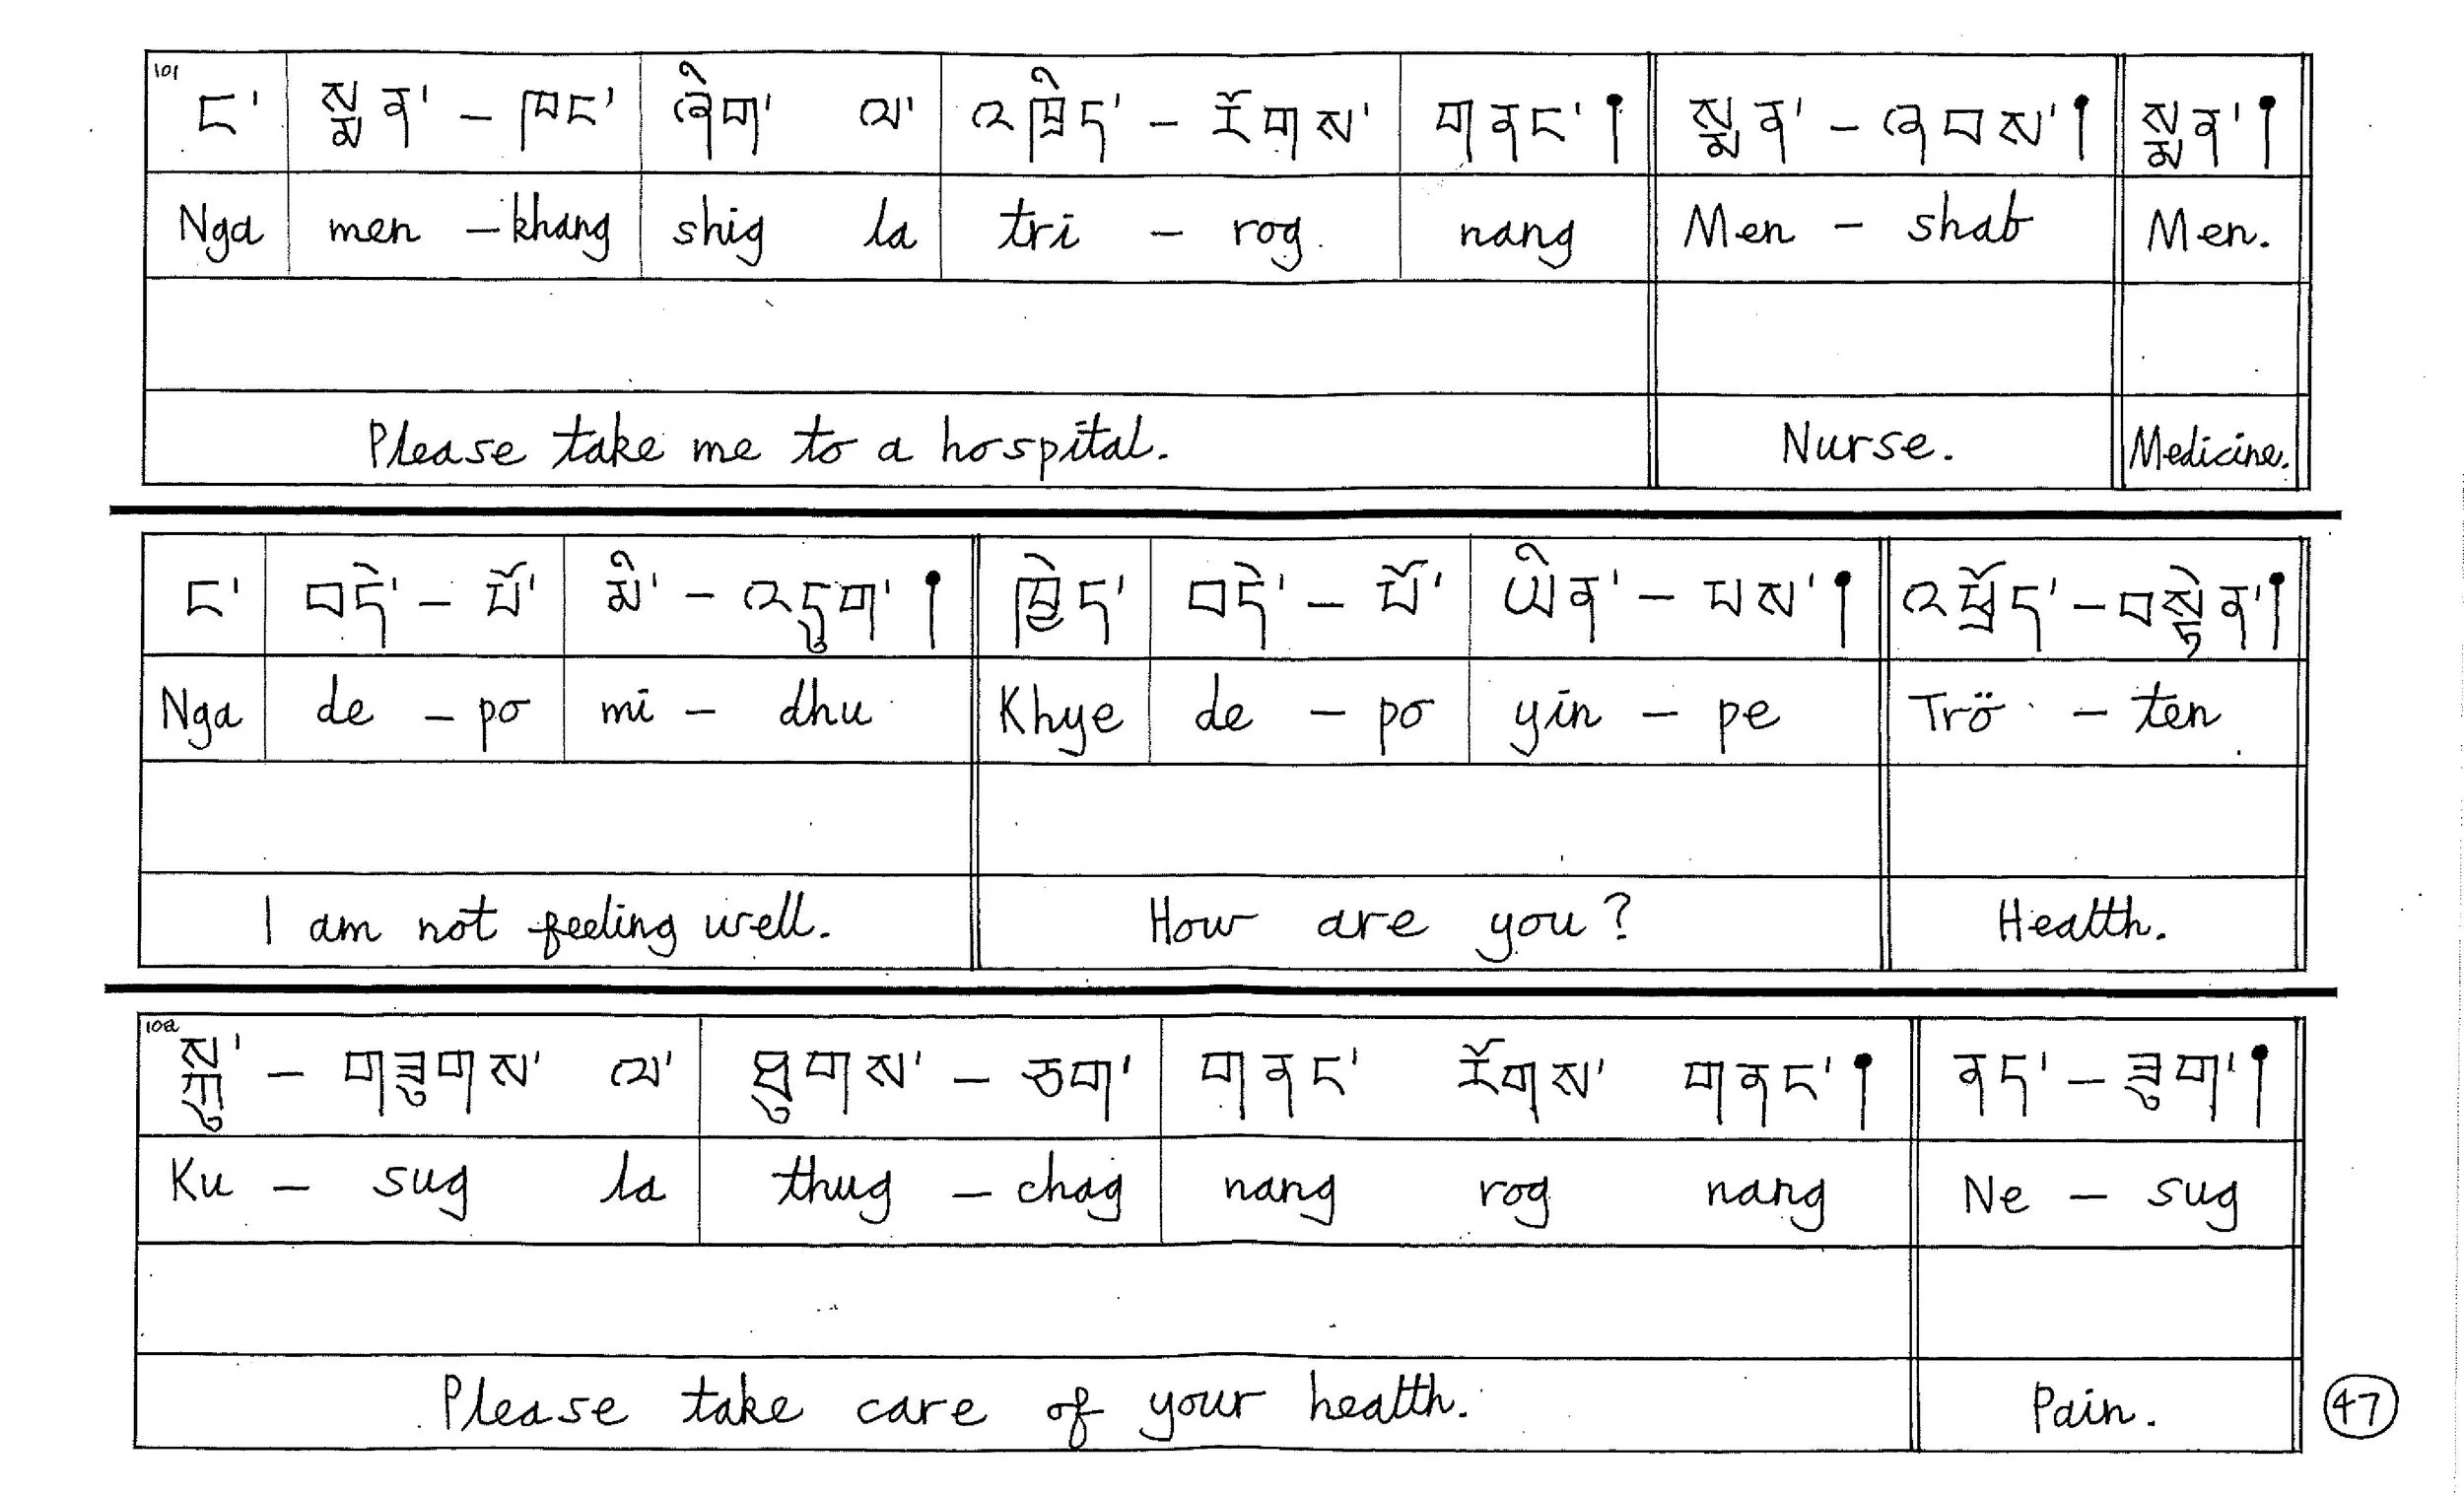 101
ང་ སྨན་ – ཁང་ ཞིག་ ལ་ འཁྲིད་ – རོགས་ གནང་། སྨན་ – ཞབས་། སྨན་།
Nga men – khang shig la tri – rog nang Men – shab Men.
Please take me to a hospital. Nurse. Medicine.
ང་ བདེ་ – པོ་ མི་ – འདུག་། ཁྱེད་ བདེ་ – པོ་ ཡིན་ – པས་། འཕྲོད་ – བསྟེན་།
Nga de – po mi – dhu Khye de – po yin – pe Trö – ten
I am not feeling well. How are you? Health.
102
སྐུ་ – གཟུགས་ ལ་ ཐུགས་ – ཅག་ གནང་ རོགས་ གནང་། ནད་ – ཟུག་།
Ku – sug la thug – chag nang rog nang Ne – sug
Please take care of your health. Pain.
47